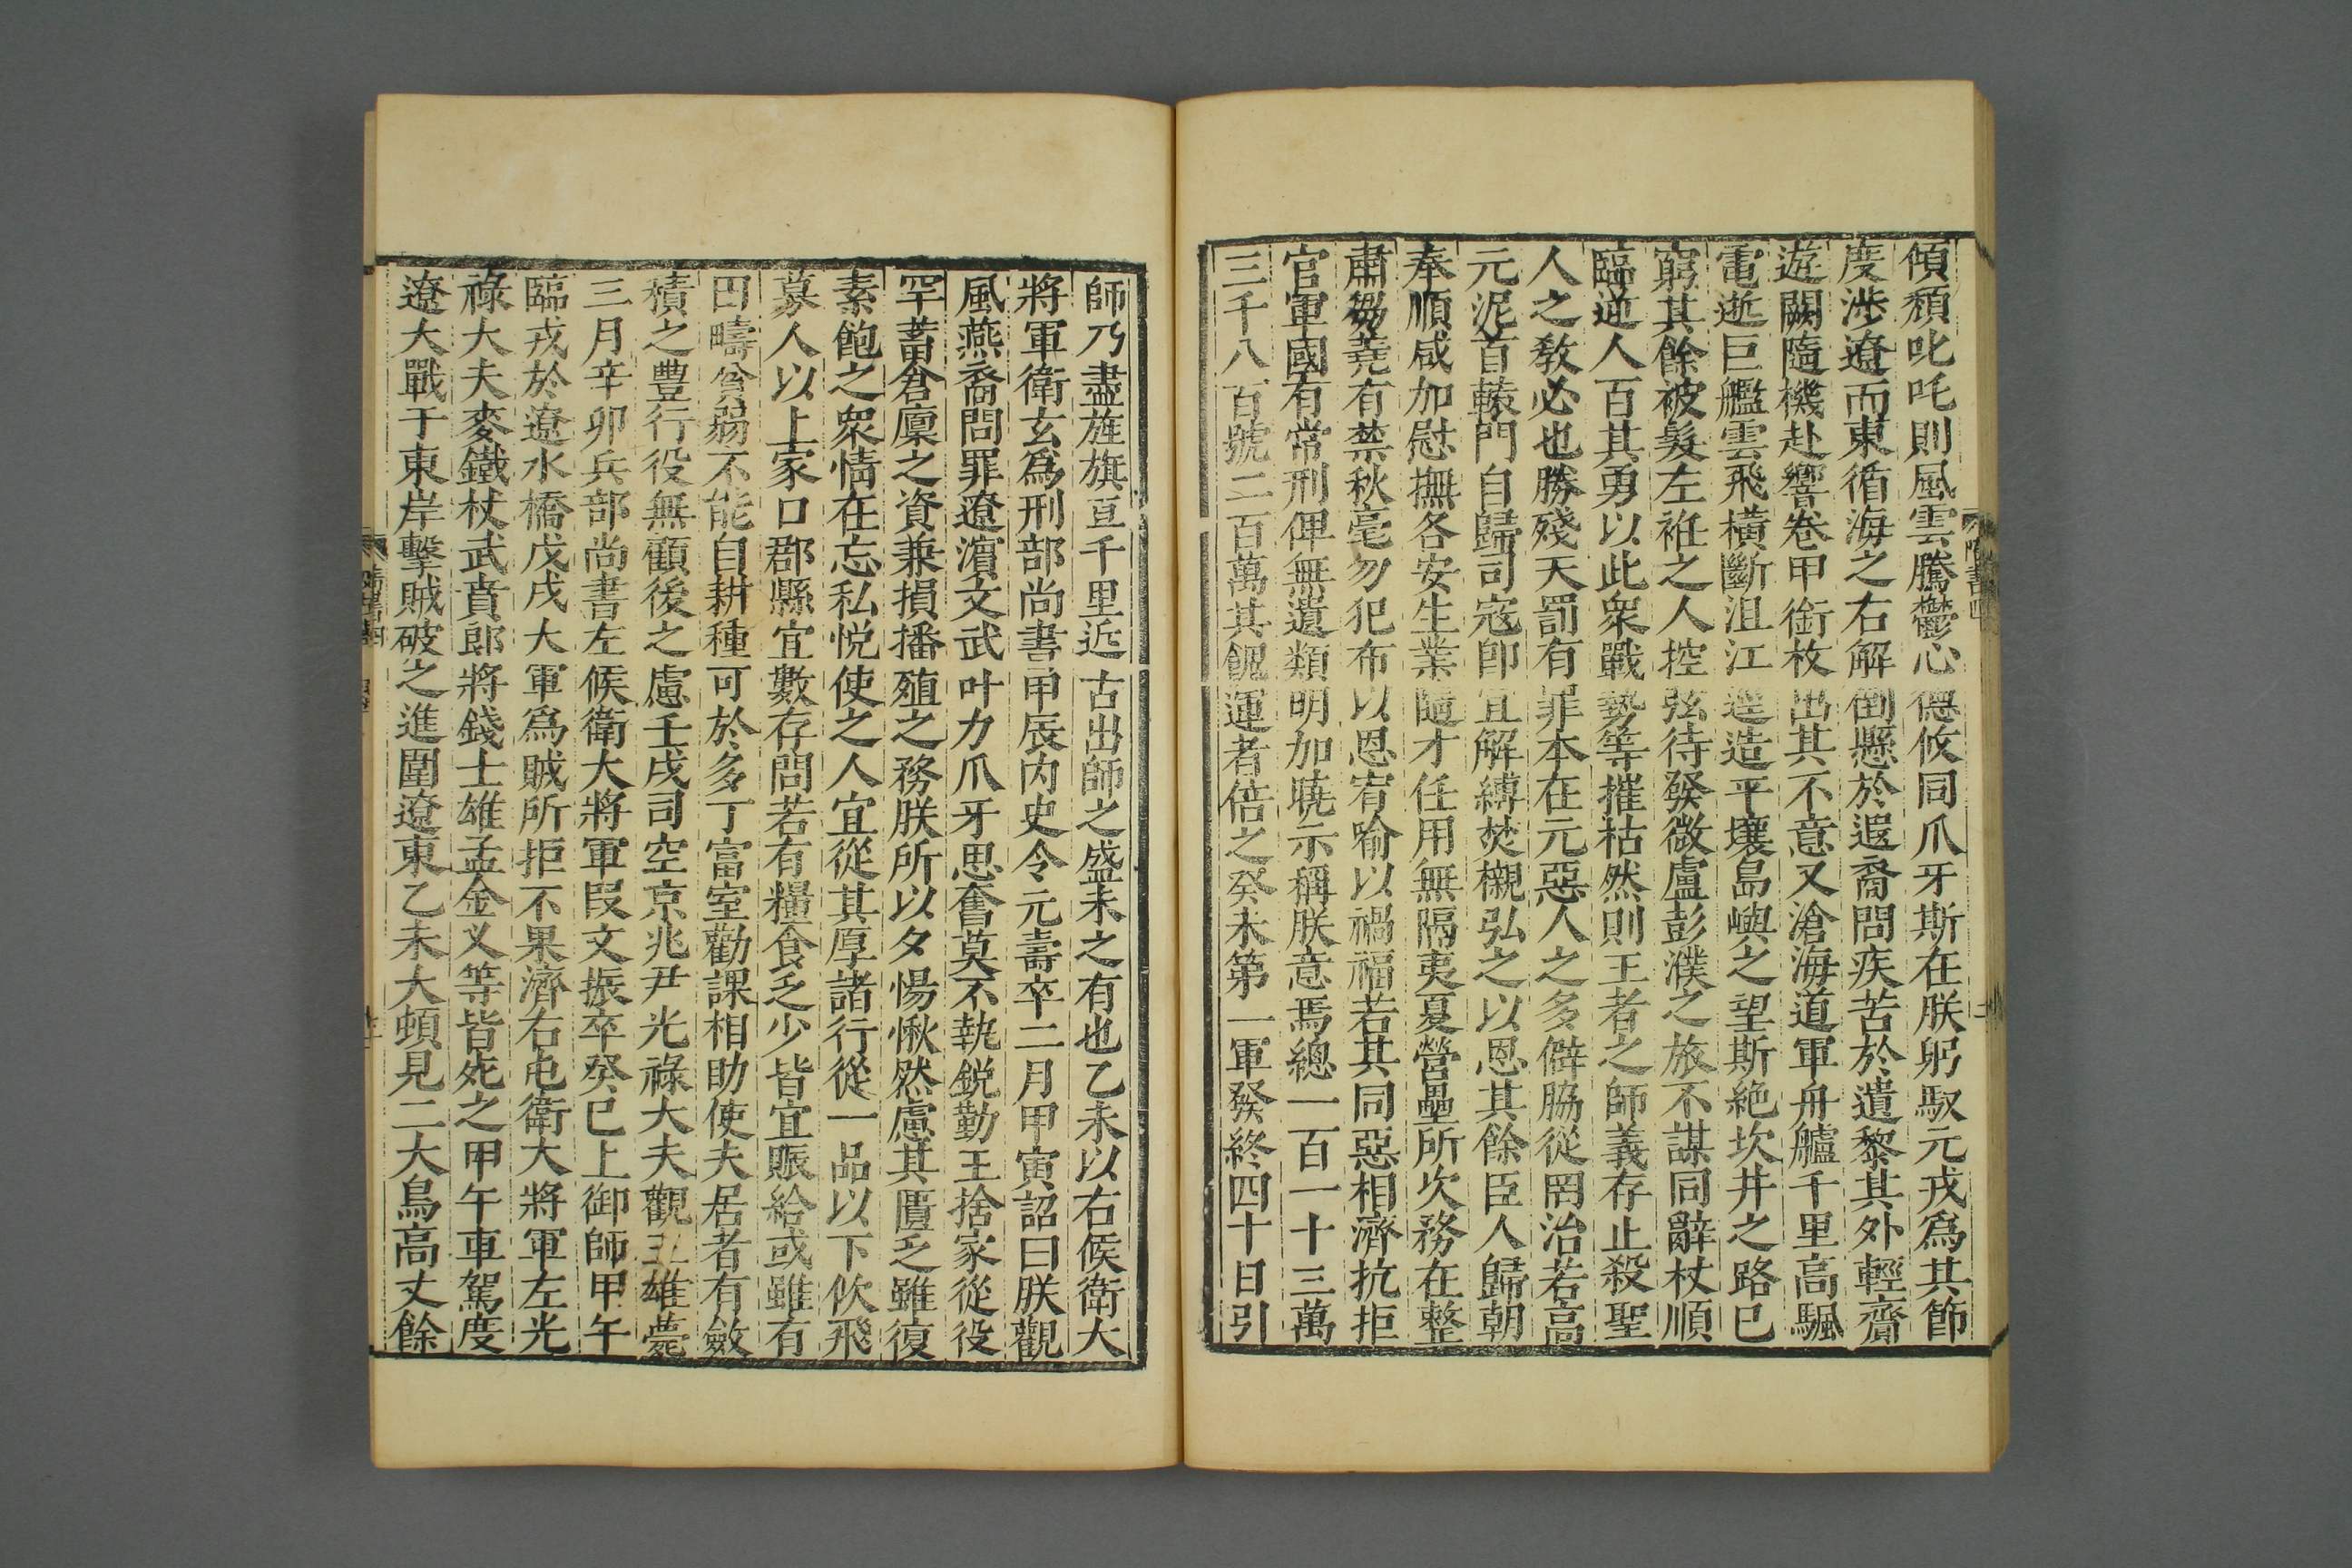 傾頹叱吒則風雲騰鬱心德攸同爪牙斯在朕躬馭元戎爲其節
度渉遼而東循海之右解倒懸於遐裔問疾苦於遺黎其外輕齎
遊闕隨機赴響卷甲銜枚出其不意又滄海道軍舟艫千里高颿
電逝巨艦雲飛橫斷沮江逕造平壤島嶼之望斯絶坎井之路已
窮其餘被髮左袵之人控弦待發微盧彭濮之旅不謀同辭杖順
臨逆人百其勇以此衆戰勢等摧枯然則王者之師義存止殺聖
人之敎必也勝殘天罰有罪本在元惡人之多僻脇從罔治若高
元泥首轅門自歸司寇即宜解縛焚櫬弘之以恩其餘臣人歸朝
奉順咸加慰撫各安生業隨才任用無隔夷夏營壘所次務在整
肅芻蕘有禁秋毫勿犯布以恩宥喻以禍福若其同惡相濟抗拒
官軍國有常刑俾無遺類明加曉示稱朕意焉總一百一十三萬
三千八百號二百萬其餽運者倍之癸未第一軍發終四十日引
師乃盡旌旗亘千里近古出師之盛未之有也乙未以右候衛大
將軍衛玄爲刑部尚書甲辰内史令元壽卒二月甲寅詔曰朕觀
風燕裔問罪遼濱文武叶力爪牙思奮莫不執鋭勤王捨家從役
罕蓄倉廩之資兼損播殖之務朕所以夕惕愀然慮其匱乏雖復
素飽之衆情在忘私悦使之人宜從其厚諸行從一品以下佽飛
募人以上家口郡縣宜數存問若有糧食乏少皆宜賑給或雖有
田疇貧弱不能自耕種可於多丁富室勸課相助使夫居者有斂
積之豐行役無顧後之慮壬戌司空京兆尹光祿大夫觀王雄薨
三月辛卯兵部尚書左候衛大將軍段文振卒癸巳上御師甲午
臨戎於遼水橋戊戌大軍爲賊所拒不果濟右屯衛大將軍左光
祿大夫麥鐵杖武賁郎將錢士雄孟金叉等皆死之甲午車駕度
遼大戰于東岸擊賊破之進圍遼東乙未大頓見二大鳥高丈餘